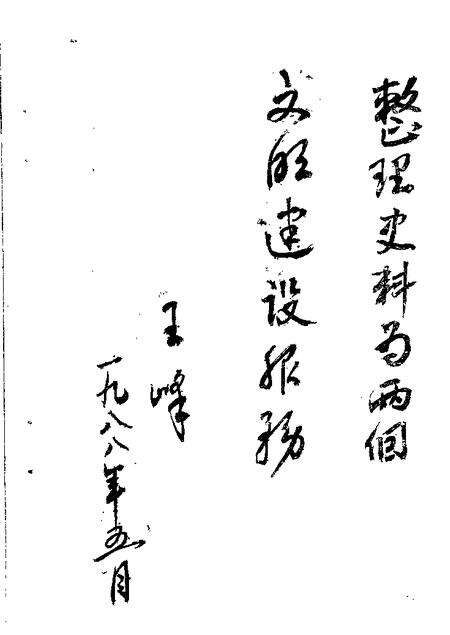 整理史料为兩個
文明建设服務
王峰
一九八八年五月